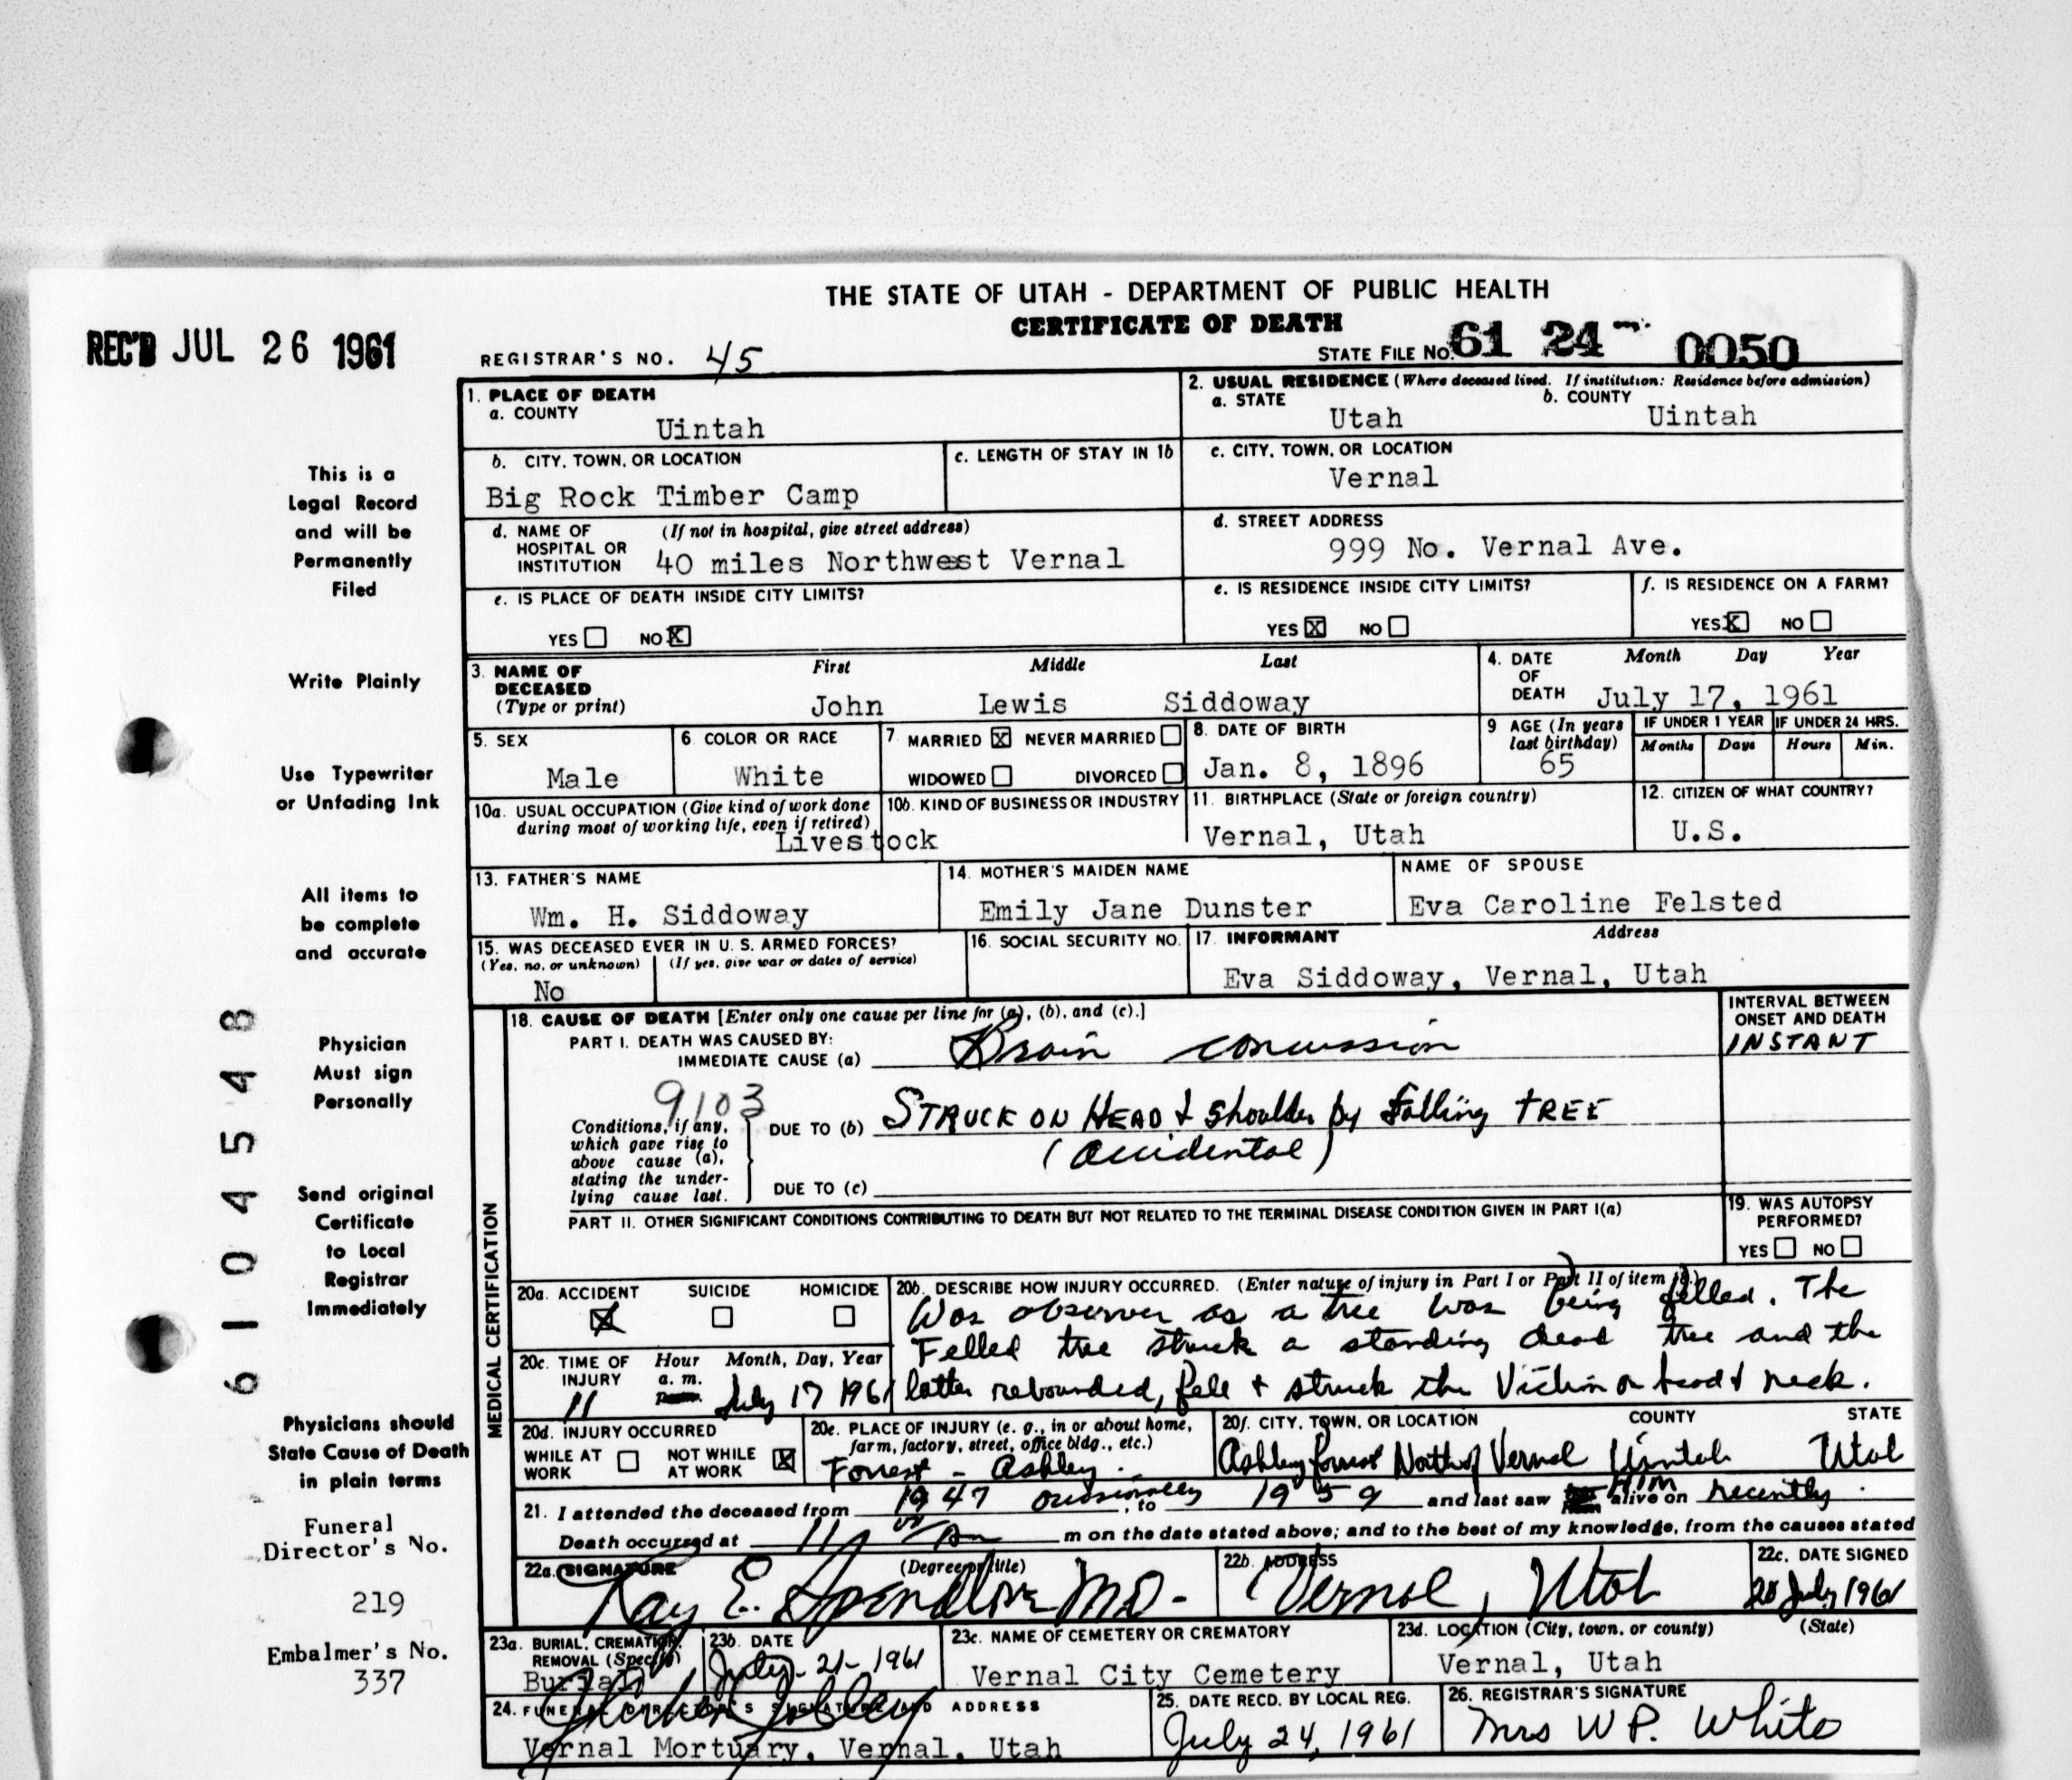 THE STATE OF UTAH - DEPARTMENT OF PUBLIC HEALTH
CERTIFICATE OF DEATH
REC'D JUL 26 1961
REGISTRAR'S NO. 45
STATE FILE NO. 61 24 0050
1. PLACE OF DEATH
a. COUNTY
Uintah
2. USUAL RESIDENCE (Where deceased lived. If institution: Residence before admission)
a. STATE
Utah
b. COUNTY
Uintah
b. CITY, TOWN, OR LOCATION
Big Rock Timber Camp
c. LENGTH OF STAY IN 1b
c. CITY, TOWN, OR LOCATION
Vernal
d. NAME OF HOSPITAL OR INSTITUTION
(If not in hospital, give street address)
40 miles Northwest Vernal
d. STREET ADDRESS
999 No. Vernal Ave.
e. IS PLACE OF DEATH INSIDE CITY LIMITS?
YES NO X
e. IS RESIDENCE INSIDE CITY LIMITS?
YES X NO
f. IS RESIDENCE ON A FARM?
YES X NO
3. NAME OF DECEASED (Type or print)
First Middle Last
John Lewis Siddoway
4. DATE OF DEATH
Month Day Year
July 17, 1961
5. SEX
Male
6. COLOR OR RACE
White
7. MARRIED X NEVER MARRIED
WIDOWED DIVORCED
8. DATE OF BIRTH
Jan. 8, 1896
9 AGE (In years last birthday)
65
IF UNDER 1 YEAR
Months Days
IF UNDER 24 HRS.
Hours Min.
10a. USUAL OCCUPATION (Give kind of work done during most of working life, even if retired)
Livestock
10b. KIND OF BUSINESS OR INDUSTRY
11. BIRTHPLACE (State or foreign country)
Vernal, Utah
12. CITIZEN OF WHAT COUNTRY?
U.S.
13. FATHER'S NAME
Wm. H. Siddoway
14. MOTHER'S MAIDEN NAME
Emily Jane Dunster
NAME OF SPOUSE
Eva Caroline Felsted
15. WAS DECEASED EVER IN U. S. ARMED FORCES?
(Yes, no, or unknown) (If yes, give war or dates of service)
No
16. SOCIAL SECURITY NO.
17. INFORMANT Address
Eva Siddoway, Vernal, Utah
MEDICAL CERTIFICATION
18. CAUSE OF DEATH [Enter only one cause per line for (a), (b), and (c).]
PART I. DEATH WAS CAUSED BY:
IMMEDIATE CAUSE (a) Brain concussion
INTERVAL BETWEEN ONSET AND DEATH
INSTANT
9103
Conditions, if any, which gave rise to above cause (a), stating the underlying cause last.
DUE TO (b) STRUCK ON HEAD & Shoulder by Falling TREE
(Accidental)
DUE TO (c)
PART II. OTHER SIGNIFICANT CONDITIONS CONTRIBUTING TO DEATH BUT NOT RELATED TO THE TERMINAL DISEASE CONDITION GIVEN IN PART I(a)
19. WAS AUTOPSY PERFORMED?
YES NO
20a. ACCIDENT X SUICIDE HOMICIDE
20b. DESCRIBE HOW INJURY OCCURRED. (Enter nature of injury in Part I or Part II of item 18.)
Was observer as a tree was being felled. The
Felled tree struck a standing dead tree and the
latter rebounded, fell & struck the Victim on head & neck.
20c. TIME OF INJURY
Hour Month, Day, Year
11 a. m. July 17 1961
20d. INJURY OCCURRED
WHILE AT WORK NOT WHILE AT WORK X
20e. PLACE OF INJURY (e. g., in or about home, farm, factory, street, office bldg., etc.)
Forrest - Ashley.
20f. CITY, TOWN, OR LOCATION COUNTY STATE
Ashley forrest North of Vernal Uintah Utah
21. I attended the deceased from 1947 occasionally, to 1959 and last saw HIM alive on recently.
Death occurred at 11 am m on the date stated above; and to the best of my knowledge, from the causes stated
22a. SIGNATURE (Degree or title)
Ray E. Spendlove MD-
22b. ADDRESS
Vernal, Utah
22c. DATE SIGNED
20 July 1961
23a. BURIAL, CREMATION, REMOVAL (Specify)
Burial
23b. DATE
July-21-1961
23c. NAME OF CEMETERY OR CREMATORY
Vernal City Cemetery
23d. LOCATION (City, town, or county) (State)
Vernal, Utah
24. FUNERAL DIRECTOR'S SIGNATURE AND ADDRESS
Vernal Mortuary, Vernal, Utah
25. DATE RECD. BY LOCAL REG.
July 24, 1961
26. REGISTRAR'S SIGNATURE
Mrs W P. White
This is a
Legal Record
and will be
Permanently
Filed
Write Plainly
Use Typewriter
or Unfading Ink
All items to
be complete
and accurate
Physician
Must sign
Personally
Send original
Certificate
to Local
Registrar
Immediately
Physicians should
State Cause of Death
in plain terms
Funeral
Director's No.
219
Embalmer's No.
337
6104548